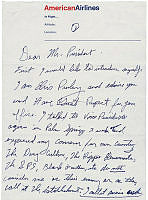 AmericanAirlines
In Flight...
Altitude;
Location;
Dear Mr. President.
First, I would like to introduce myself.
I am Elvis Presley and admire you
and Have Great Respect for your
office. I talked to Vice President
Agnew in Palm Springs 3 weeks and
expressed my concern for our country.
The Drug Culture, the Hippie Elements,
the SDS, Black Panthers, etc do not
consider me as their enemy or as they
call it the Establishment. I call it